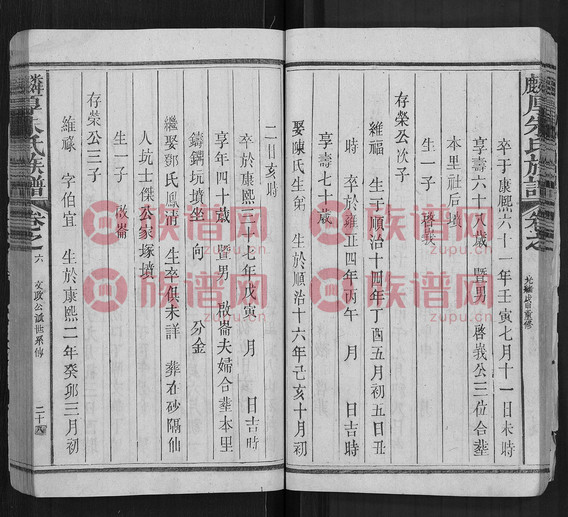 麟厚朱氏族譜 卷之
卒于康熙六十一年壬寅七月十一日未時
享壽六十八歲 暨男 啓義公三位合塟
本里社后墳
生一子 啓義
存榮公次子
維福 生于順治十四年丁酉五月初五日丑
時 卒於雍正四年丙午 月 日吉時
享壽七十歲
娶陳氏生 生於順治十六年己亥十月初
二日亥時
卒於康熙三十七年戊寅 月 日吉時
享年四十歲 暨男 啟崙夫婦合塟本里
鑄鐦坑墳坐 向 分金
繼娶鄧氏鳳清 生卒俱未詳 葬在砂隔仙
人坑士傑公家塚墳
生一子 啟崙
存榮公三子
維祿 字伯宜 生於康熙二年癸卯三月初
麟厚朱氏族譜 卷之六 文政公派世系傳 二十四
族谱网
zupu.cn
族谱网
zupu.cn
族谱网
zupu.cn
族谱网
zupu.cn